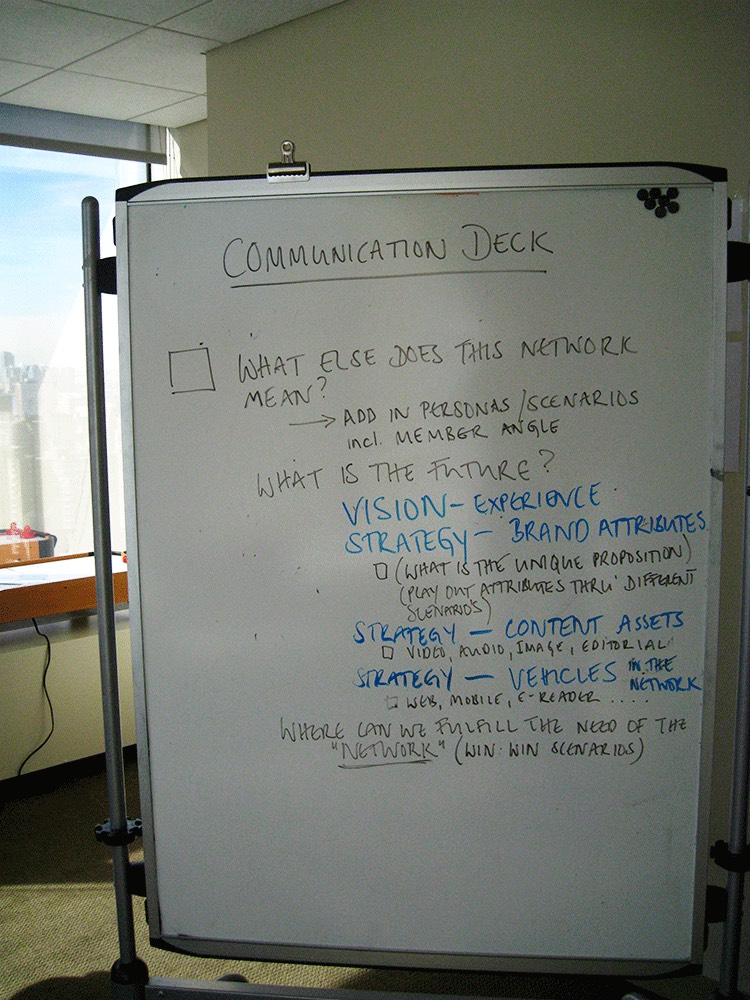 COMMUNICATION DECK
WHAT ELSE DOES THIS NETWORK
MEAN?
→ ADD IN PERSONAS/SCENARIOS
incl. MEMBER ANGLE
WHAT IS THE FUTURE?
VISION - EXPERIENCE
STRATEGY - BRAND ATTRIBUTES
(WHAT IS THE UNIQUE PROPOSITION)
(PLAY OUT ATTRIBUTES THRU' DIFFERENT
SCENARIOS)
STRATEGY - CONTENT ASSETS
VIDEO, AUDIO, IMAGE, EDITORIAL
STRATEGY - VEHICLES IN THE
NETWORK
WEB, MOBILE, E-READER ....
WHERE CAN WE FULFILL THE NEED OF THE
"NETWORK" (WIN-WIN SCENARIOS)